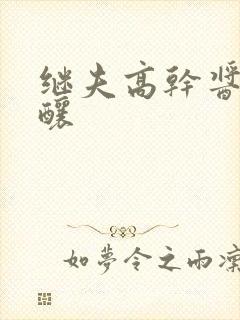 继夫高幹醬
釀
如夢令之雨